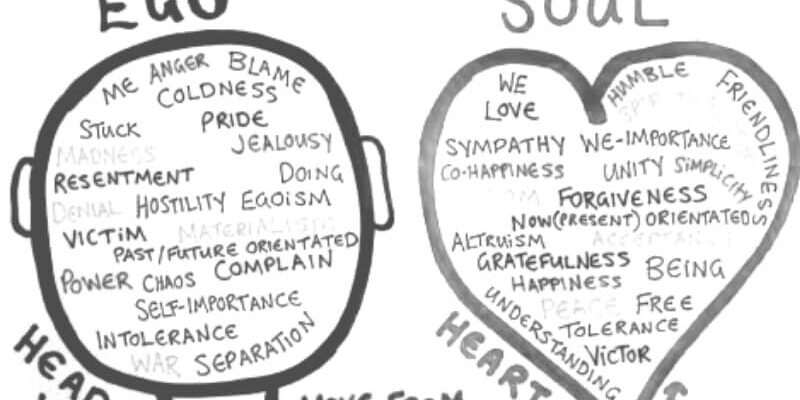 EGO
ME ANGER BLAME
COLDNESS
STUCK
PRIDE
MADNESS
JEALOUSY
RESENTMENT
DOING
DENIAL HOSTILITY EGOISM
VICTIM MATERIALISM
PAST/FUTURE ORIENTATED
POWER CHAOS COMPLAIN
SELF-IMPORTANCE
INTOLERANCE
WAR SEPARATION
HEAD
SOUL
WE
LOVE
HUMBLE
FRIENDLINESS
SYMPATHY WE-IMPORTANCE
CO-HAPPINESS UNITY SIMPLICITY
FORGIVENESS
NOW(PRESENT) ORIENTATED
ALTRUISM ACCEPTANCE
GRATEFULNESS BEING
HAPPINESS
PEACE FREE
UNDERSTANDING
TOLERANCE
VICTOR
HEART
MOVE FROM